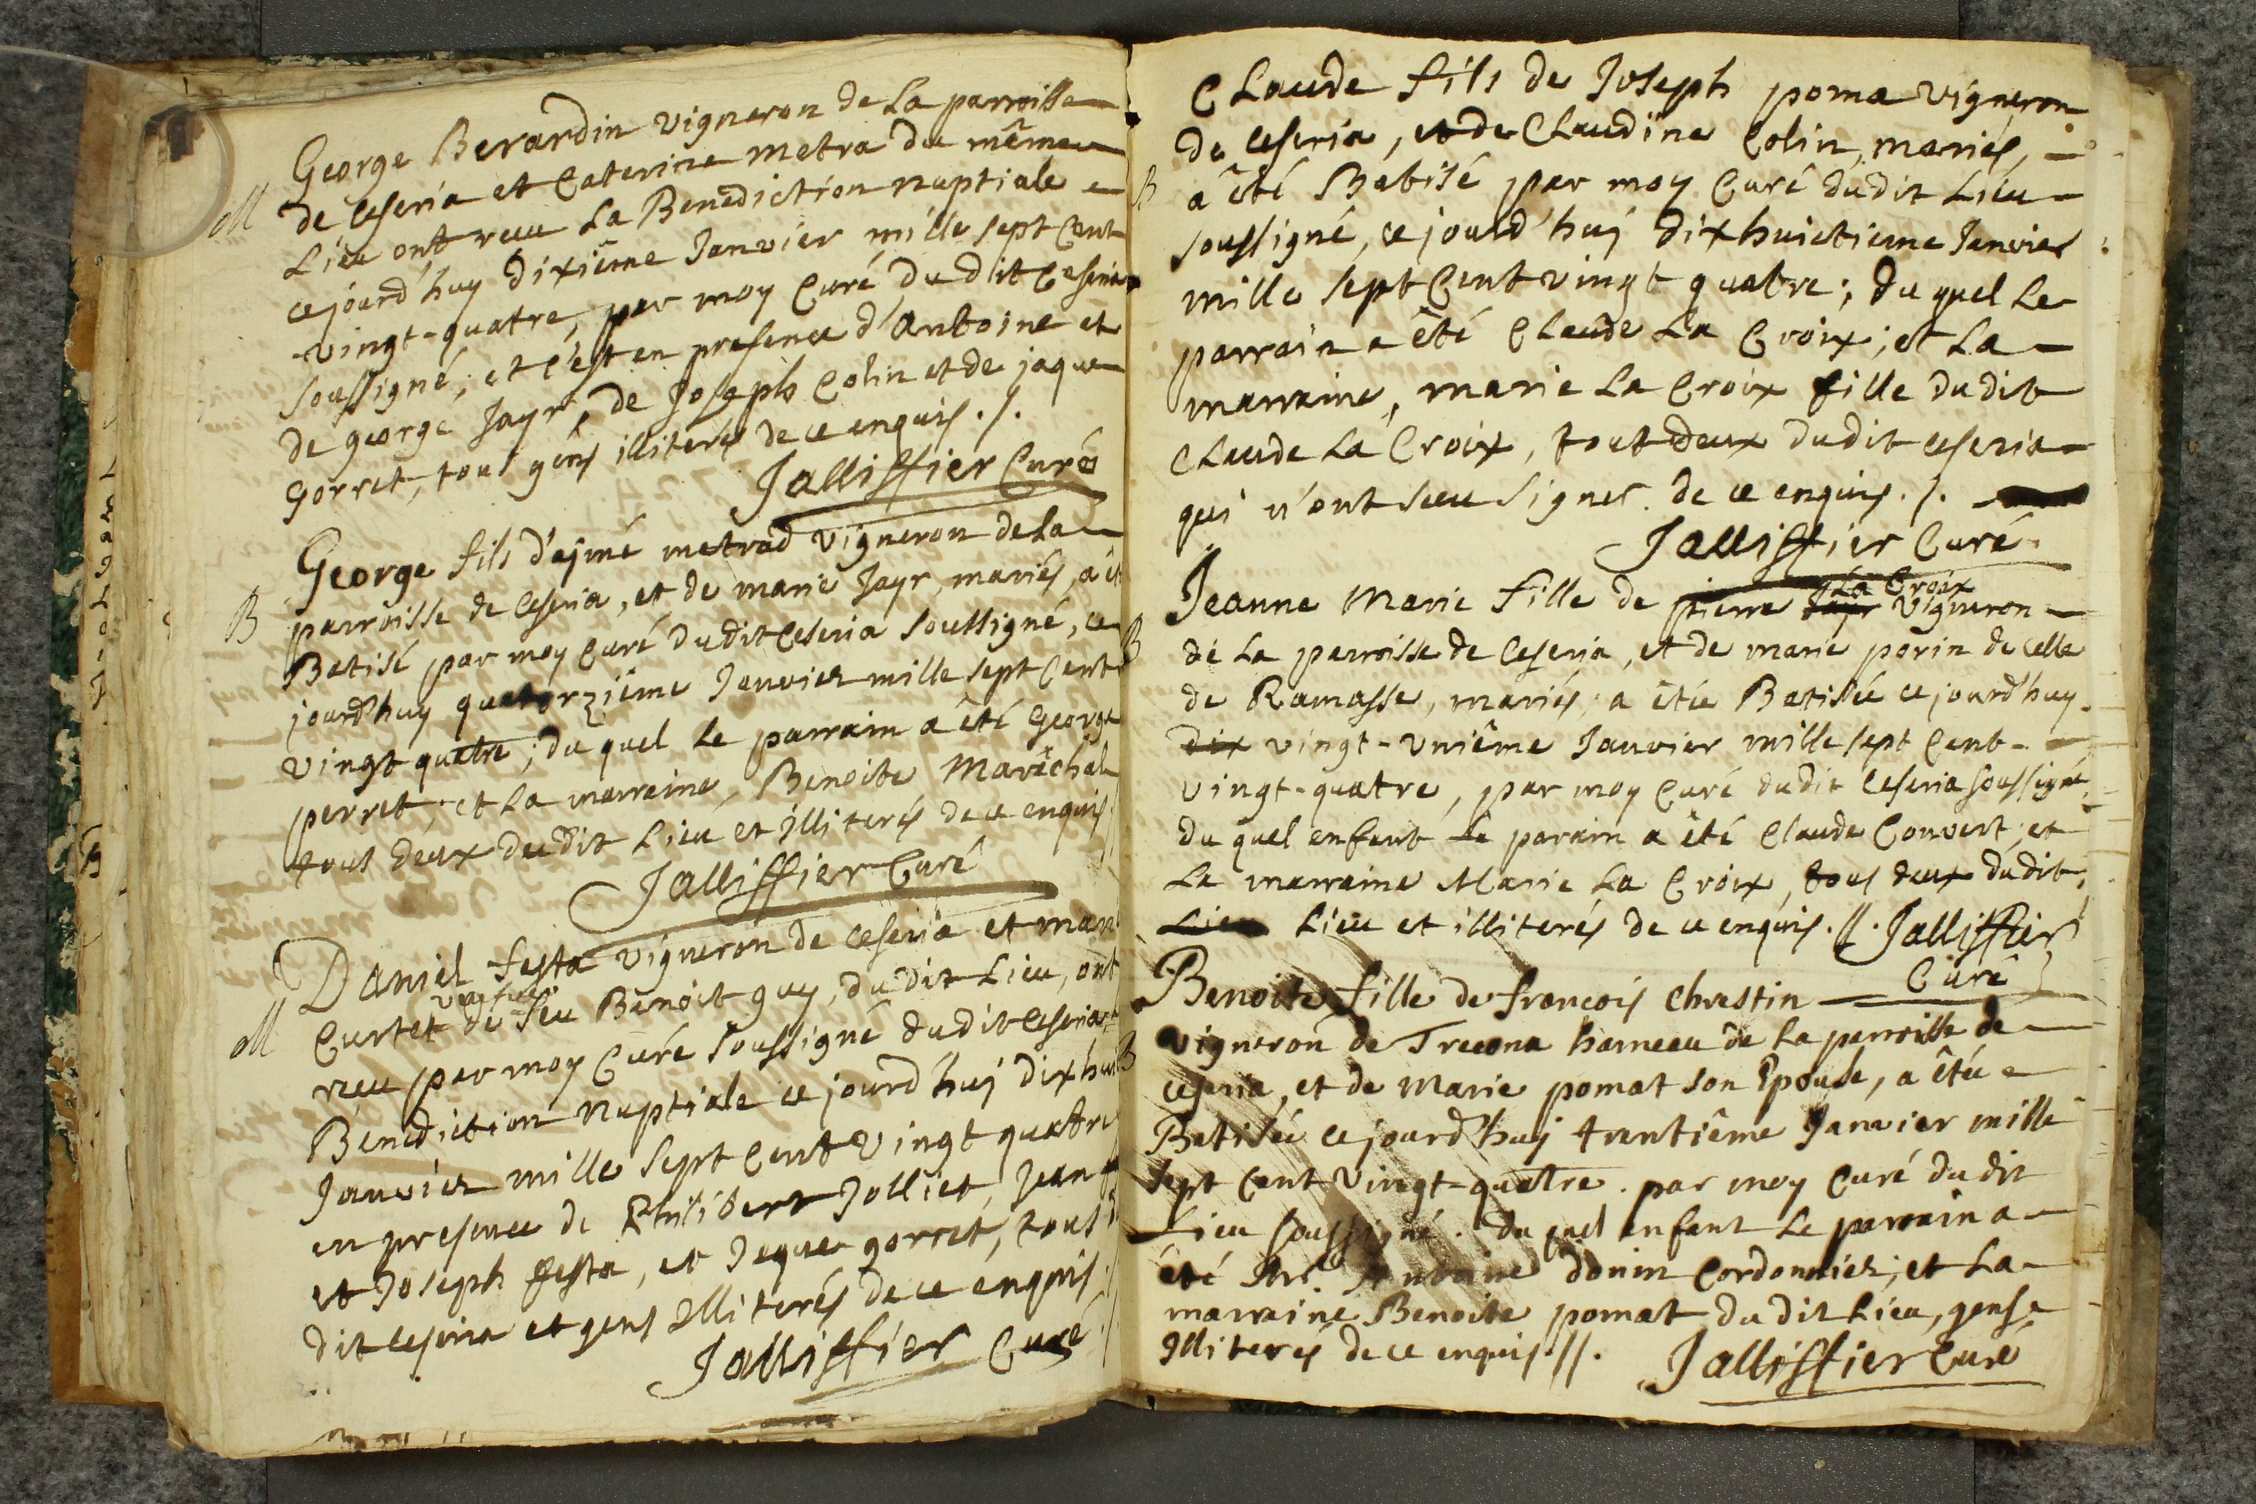 George Berardin vigneron de La parroisse
M
de Ceseria et Caterine metra du même
Lieu ont receu La Benediction nuptiale
cejourd'huy dixiême Janvier mille sept Cent
-vingt-quatre, par moy Curé du dit Ceseria
soussigné; et c'est en presence d'Antoine et
de george Jayr, de Joseph Colin et de jaque
Gorret, tous gens illiterés de ce enquis./.
Jalliffier Curé
George fils d'ejmé metrad vigneron de La
B
parroisse de Ceseria, et de marie Jayr, mariés, a êt
Batisé par moy Curé dudit Ceseria soussigné, ce
jourd'huy quatorziême Janvier mille sept Cent
vingt quatre; du quel Le parrain a êté George
perret; et La marraine, Benoite Marêchal
tous deux dudit Lieu et illiterés de ce enquis
Jalliffier Curé
Daniel festa vigneron de Ceseria et mari
veufve
M
Curtet de feu Benoit guy, du dit Lieu, ont
receu par moy Curé soussigné dudit Ceseria
Benediction Nuptiale ce jourd'huj dixhui
Janvier mille sept Cent vingt quatre
en presence de Philibert Jolliet, Jean
et Joseph festa, et Jaque gorret, tous
dit Ceseria et gens Illiterés de ce enquis
Jalliffier Curé
Claude fils de Joseph poma vigneron
de Ceseria, et de Claudine Colin, mariés,
B
a êté Batisé par moy Curé dudit Lieu
soussigné, ce jourd'huj dixhuictieme Janvier
mille sept Cent vingt quatre; du quel Le
parrain a êté Claude La Croix; et La
marraine, marie La Croix fille dudit
Claude La Croix, tout deux dudit Ceseria
qui n'ont sceu signer de ce enquis./.
Jalliffier Curé
La Croix
Jeanne Marie fille de pierre Jayr vigneron
B
de La parroisse de Ceseria, et de marie porin de celle
de Ramasse, mariés; a êtée Batisée ce jourd'huy
dix vingt-uniême Janvier mille sept Cent-
vingt-quatre, par moy Curé dudit Ceseria soussigné,
du quel enfant Le parain a êté Claude Convert; et
La marraine Marie La Croix, tous deux dudit
Lieu Lieu et illiterés de ce enquis.//. Jalliffier
Curé
Benoite fille de francois Chrestin
B
vigneron de Trecona hameau de La parroisse de
Ceseria, et de Marie pomat son Epouse, a êtée
Batisée ce jourd'huj trentiême Janvier mille
sept Cent vingt-quatre. par moy Curé du dit
Lieu soussigné. du quel enfant Le parrain a
êté Antoine donin Cordonnier; et La
marraine Benoite pomat du dit Lieu, gens
Illiterés de ce enquis//.
Jalliffier Curé